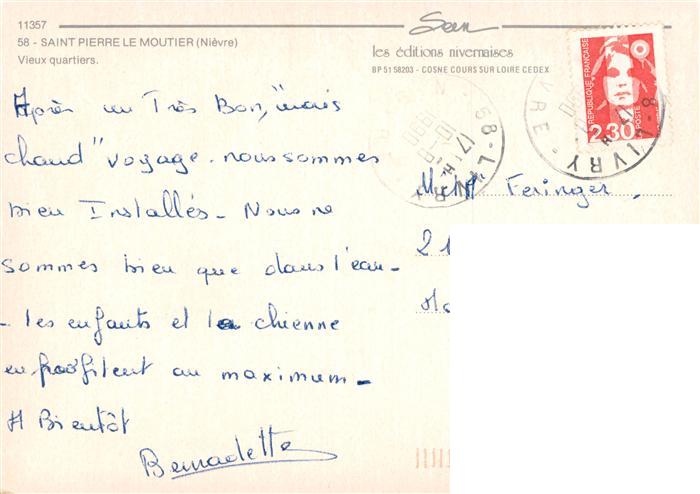 11357
58 - SAINT PIERRE LE MOUTIER (Nièvre)
Vieux quartiers.
les éditions nivernaises
BP 51 58203 - COSNE COURS SUR LOIRE CEDEX
REPUBLIQUE FRANÇAISE
2,30
POSTE
Après un Très Bon, "mais
chaud" voyage. nous sommes
bien Installés - Nous ne
sommes bien que dans l'eau -
- les enfants et la chienne
en profitent au maximum -
A Bientôt
Bernadette
Feringer